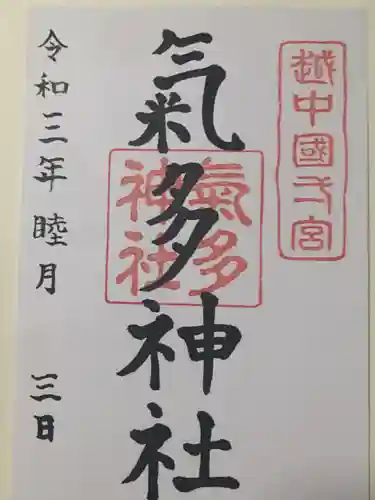 越中國一宮
氣多神社
氣多神社
令和三年睦月 三日